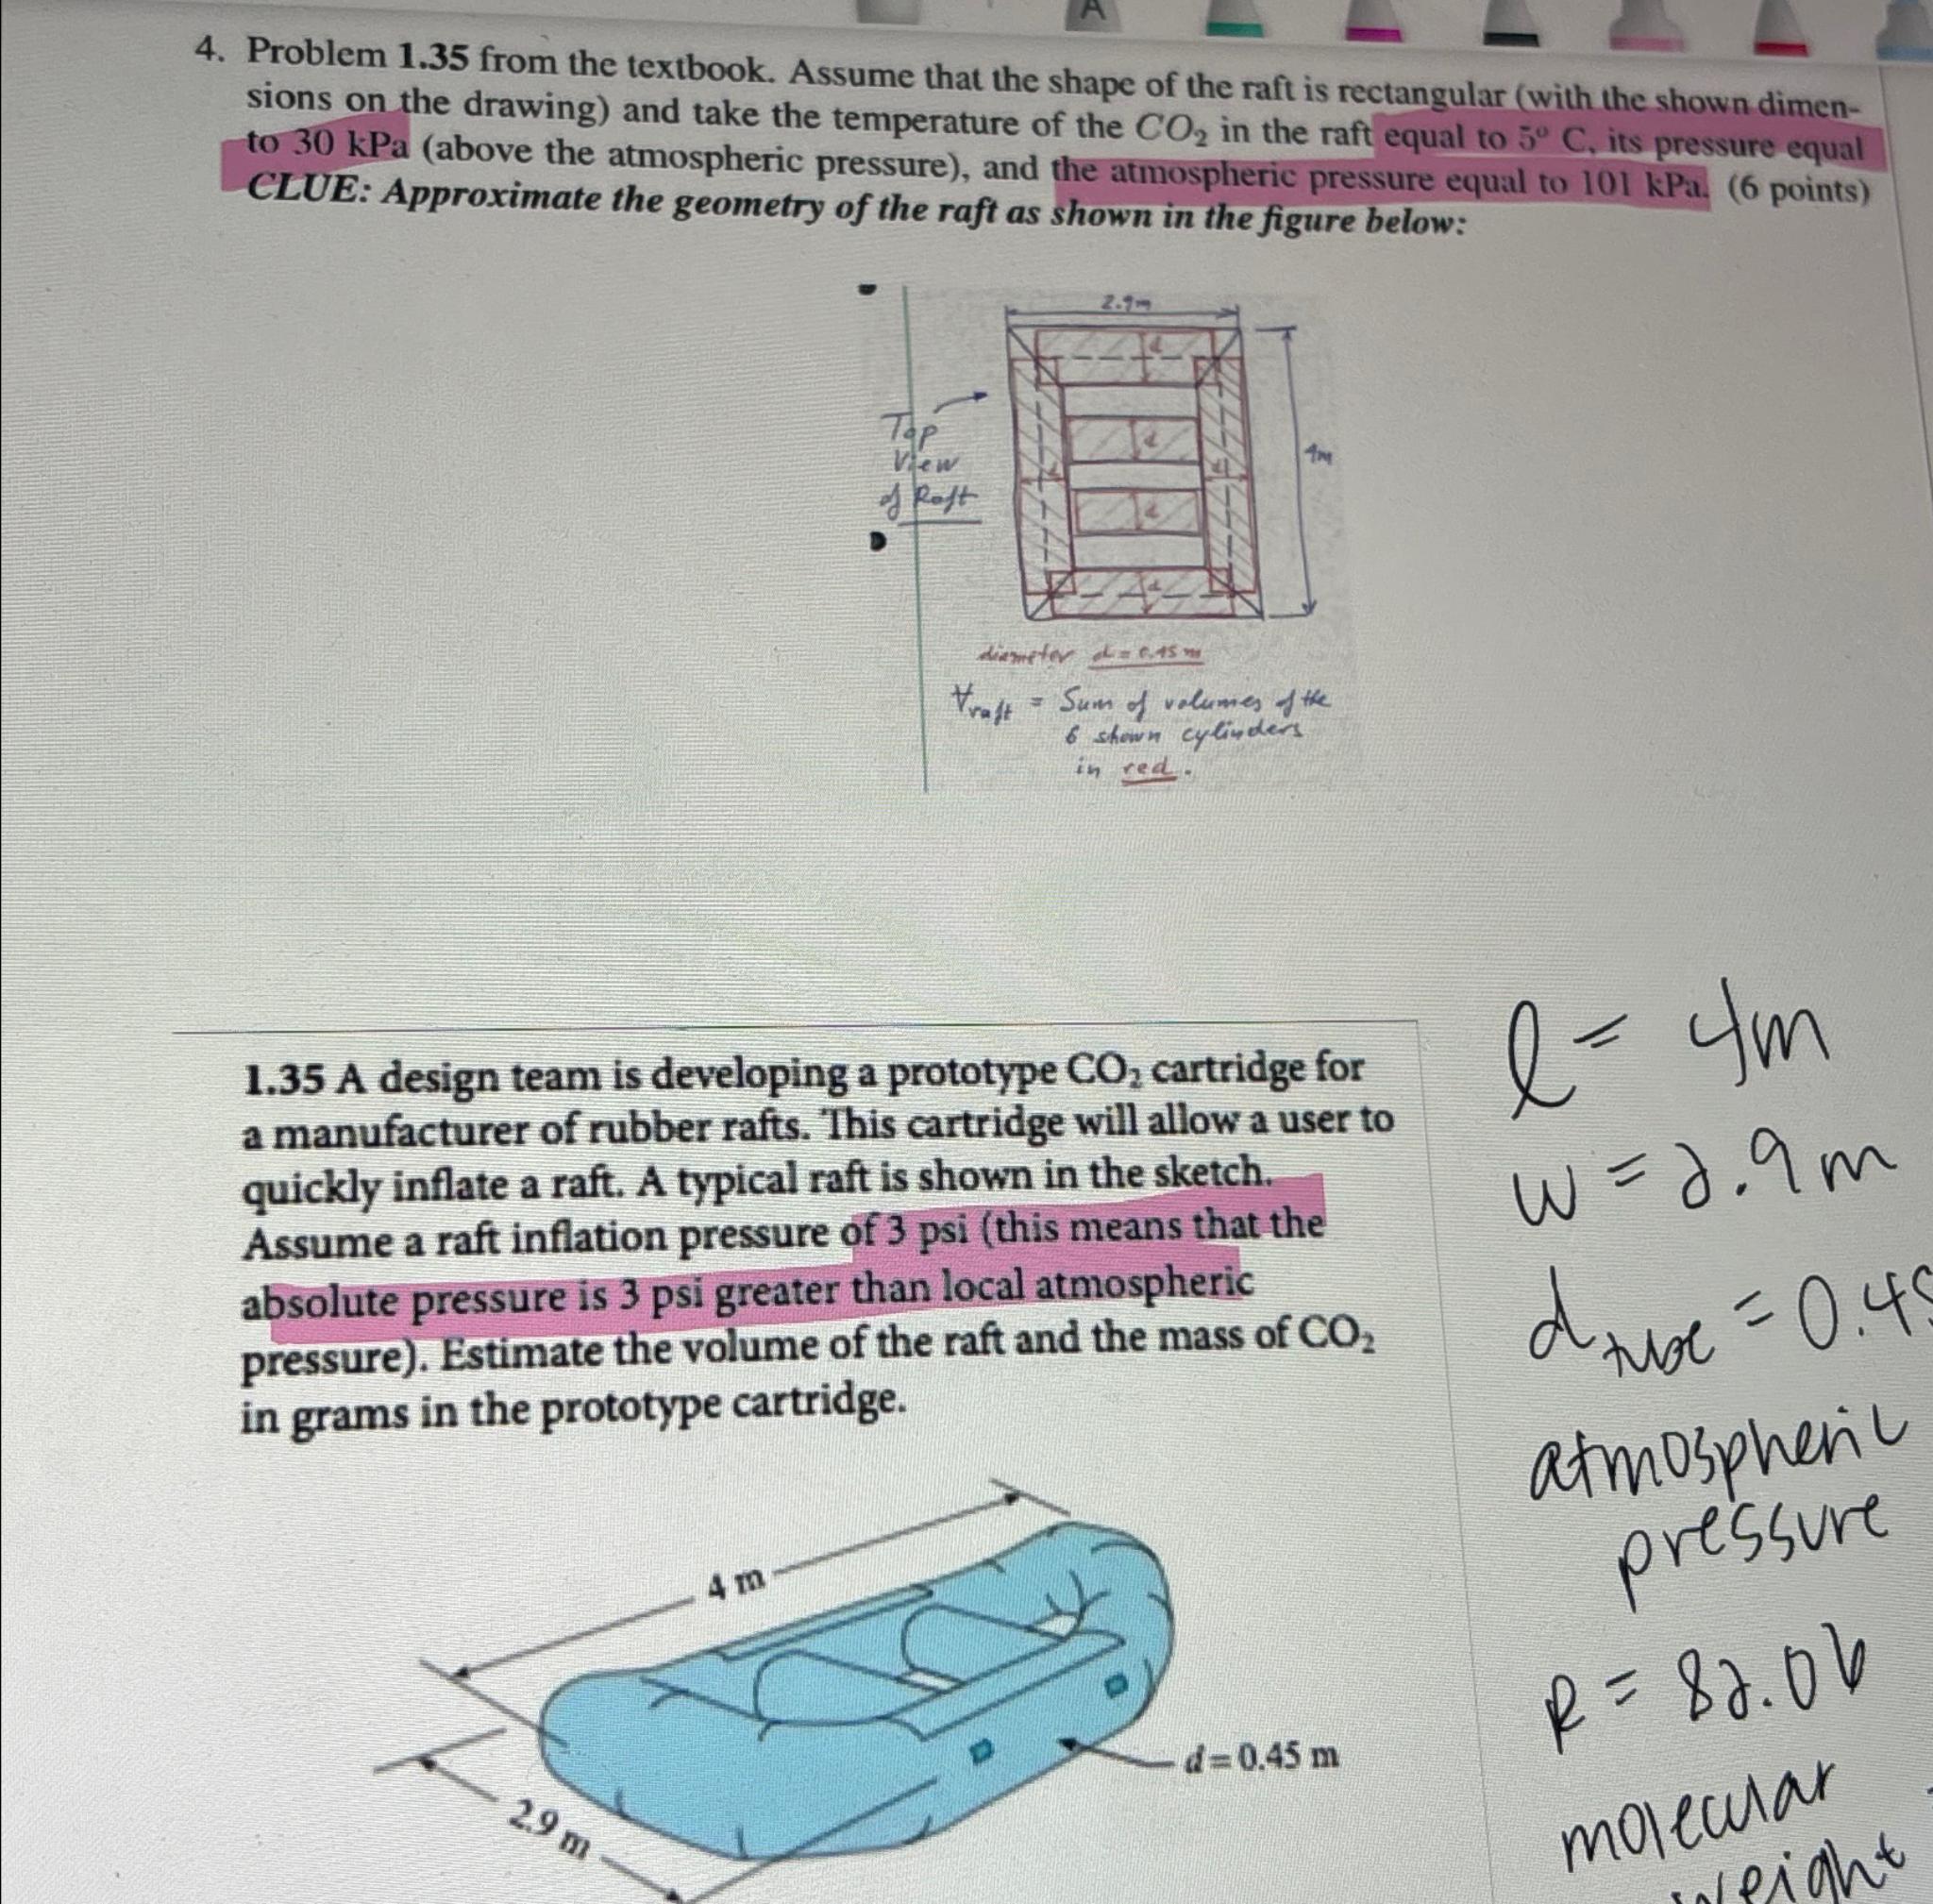 A
4. Problem 1.35 from the textbook. Assume that the shape of the raft is rectangular (with the shown dimen-
sions on the drawing) and take the temperature of the CO₂ in the raft equal to 5° C, its pressure equal
to 30 kPa (above the atmospheric pressure), and the atmospheric pressure equal to 101 kPa. (6 points)
CLUE: Approximate the geometry of the raft as shown in the figure below:
2.9m
d
Top
View
of Raft
d
4m
d
d
d
d
diameter d = 0.45 m
∀raft = Sum of volumes of the
6 shown cylinders
in red.
1.35 A design team is developing a prototype CO₂ cartridge for
a manufacturer of rubber rafts. This cartridge will allow a user to
quickly inflate a raft. A typical raft is shown in the sketch.
Assume a raft inflation pressure of 3 psi (this means that the
absolute pressure is 3 psi greater than local atmospheric
pressure). Estimate the volume of the raft and the mass of CO₂
in grams in the prototype cartridge.
4 m
d = 0.45 m
2.9 m
l = 4m
w = 2.9m
d tube = 0.45
atmospheric
pressure
R = 82.06
molecular
weight